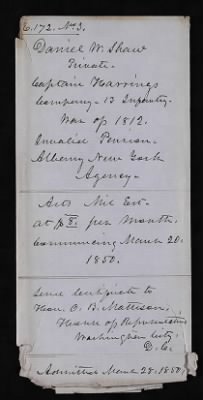 C. 172. No 3.
Daniel W. Shaw
Private.
Captain
Company - 13 Infantry.
War of 1812.
Invalid Pension.
Albany New York
Agency.
Acts Mil Est.
at $8. per Month.
Commencing March 20.
1850.
Send Certificate to
Hon. O. B. Matteson,
House of Representatives
Washington City,
D. C.
Admitted March 28. 1850.